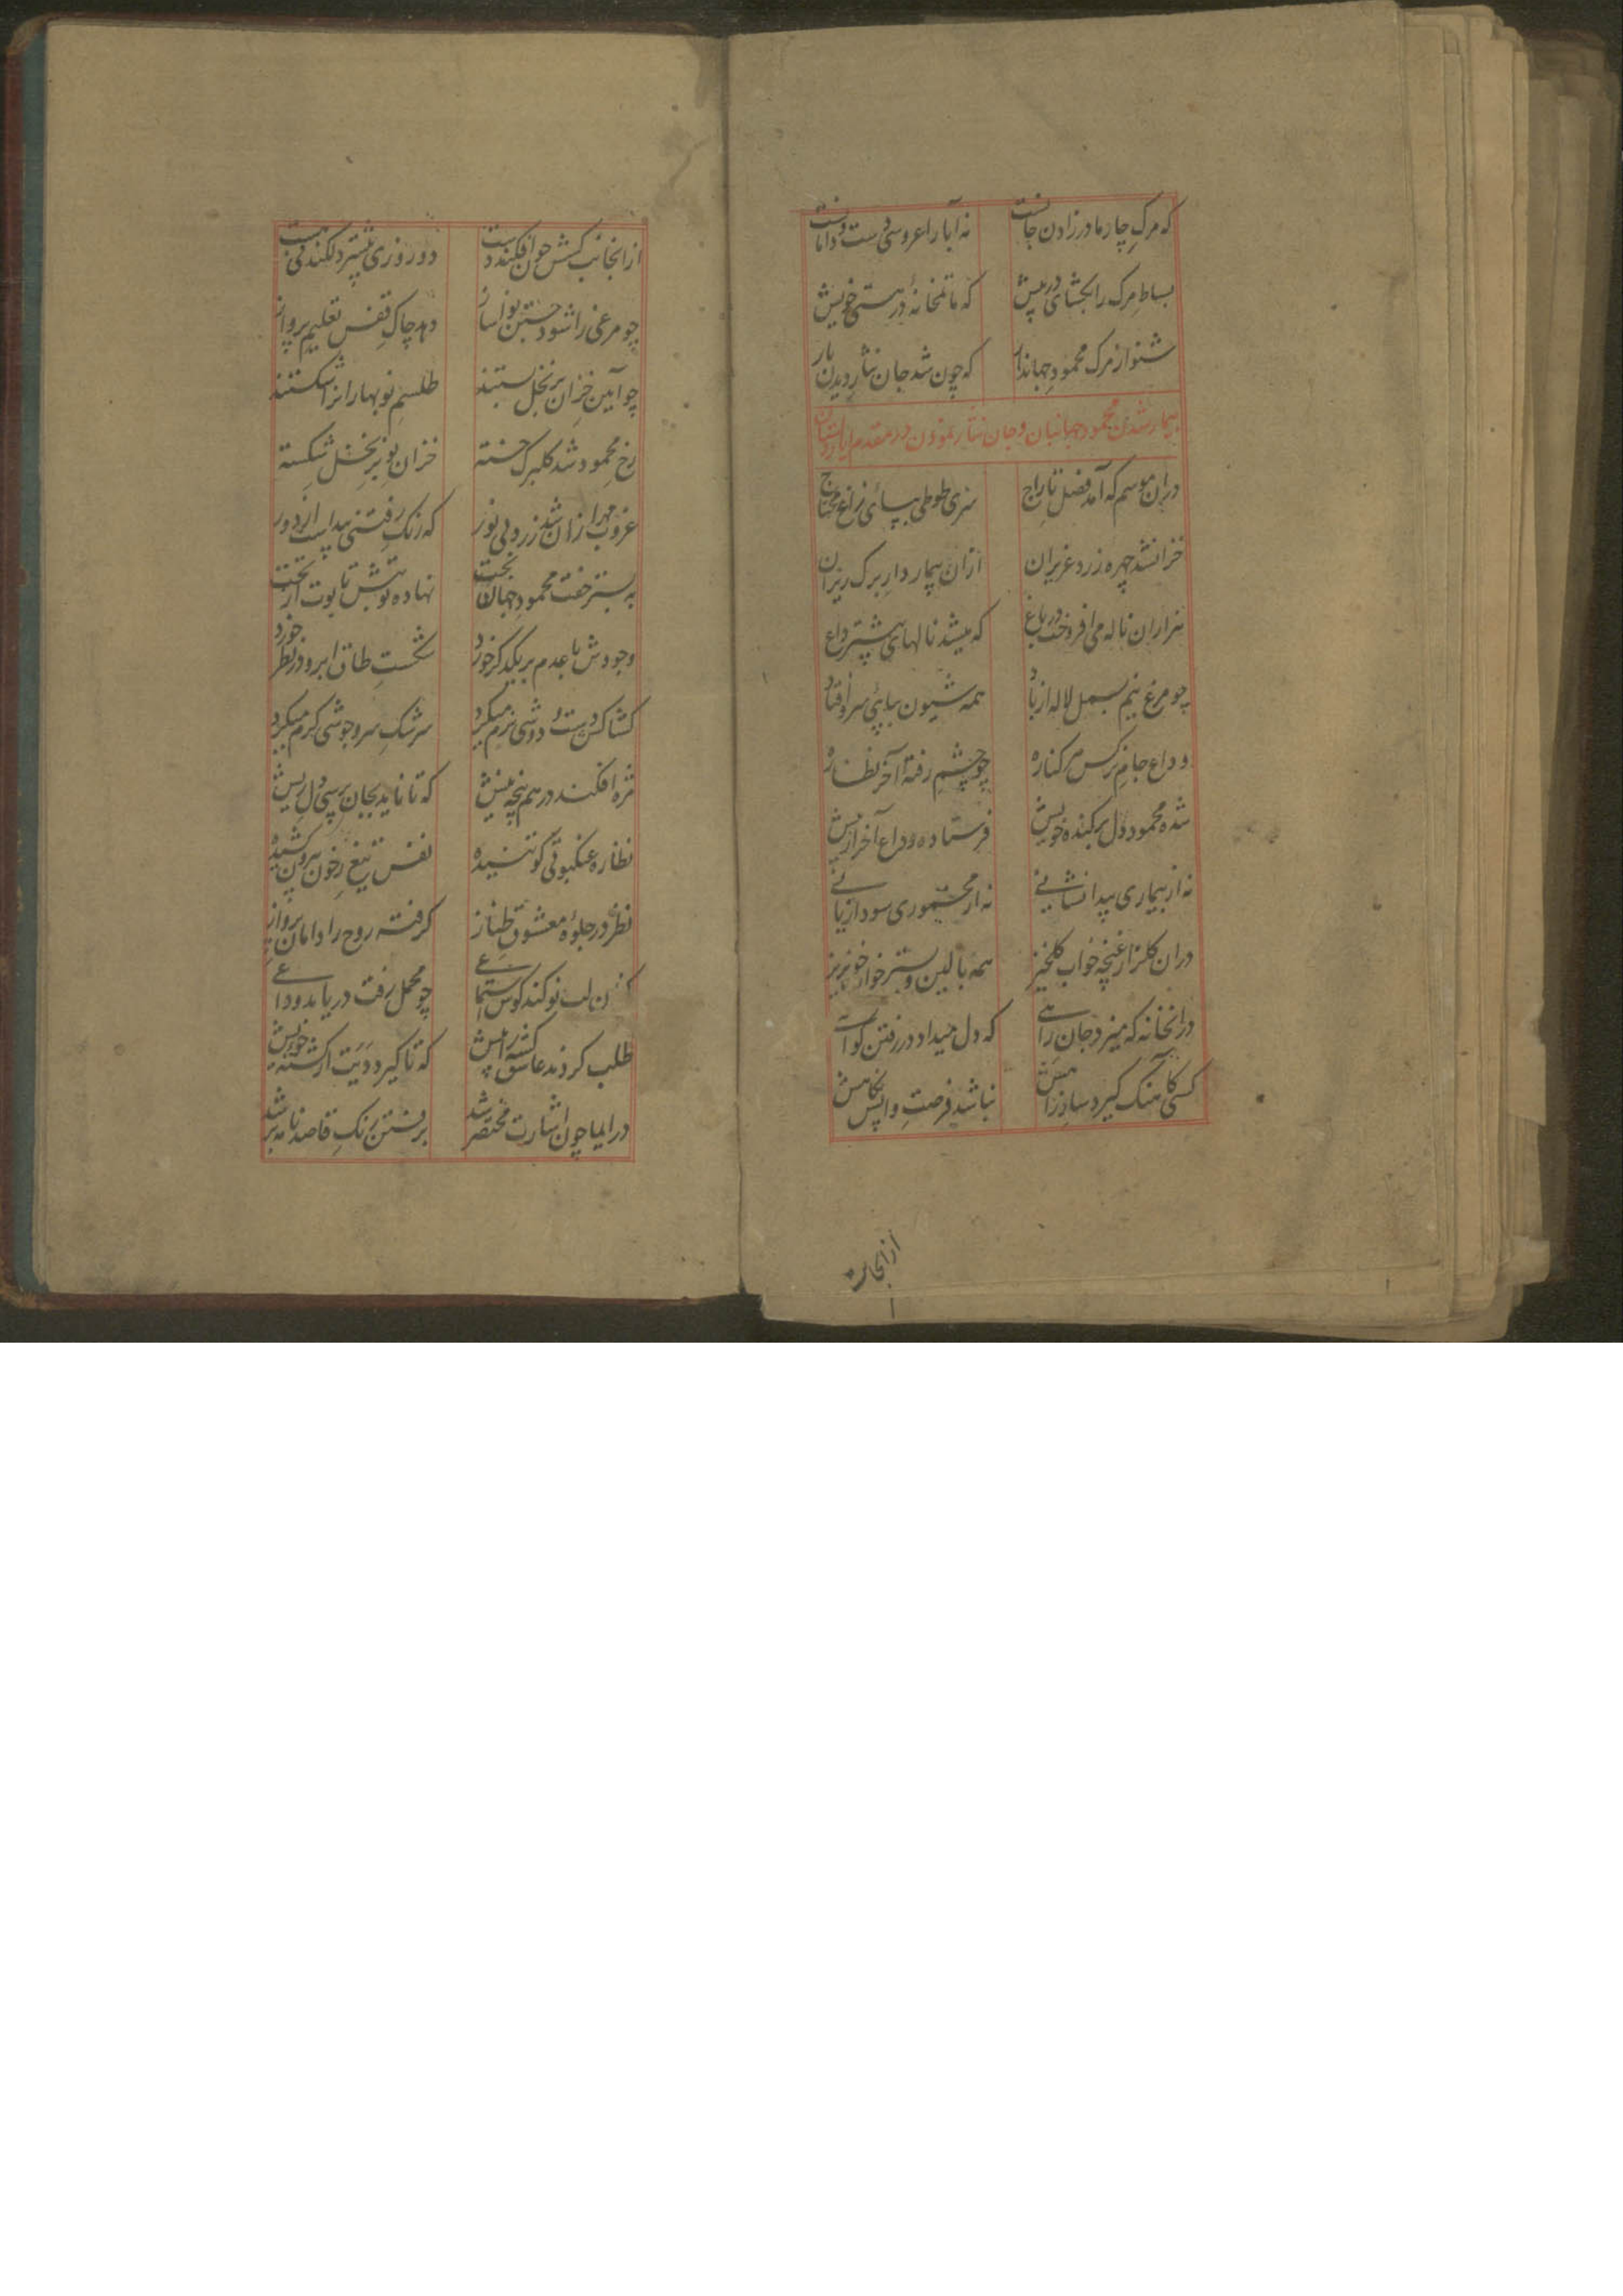 که مرگ چار مادر زادن جانست نه آبا را عروسی ست و دامانست
بساط مرگ را بگشای در پیش که ماتمخانهٔ در هستی خویش
شنو از مرگ محمود جهاندار که چون شد جان نثار دیدن یار
بیمار شدن محمود جهانبان و جان نثار نمودن در مقدم ایاز
دران موسم که آمد فصل تاراج سری طوطی بپای زاغ محتاج
خزان شد چهره زرد عزیزان ازان بیماردار برگ ریزان
هزاران ناله می افروخت در باغ که میشد نالهای پیشتر داغ
چو مرغ نیم بسمل لاله از باد همه شیون بپای سرو افتاد
وداع جام نرگس بر کناره چو چشم رفته آخر نظاره
شده محمود دل برکنده خویش فرستاده وداع آخر از پیش
نه از بیماری پیدا نشانی نه از مخموری سود از زیانی
دران گلزار غنچه خواب گلخیز همه بالین و بستر خوار خونریز
درانخانه که میزد جان راهی که دل میداد در رفتن گواهی
کسی کاهنگ گیرد ساز راهش نباشد فرصت واپس نگاهش
ازانجانب
ازانجانب کشش چون افکند دست دو روزی پیشتر دل کند
چو مرغی را شود جستن هوا ساز دهد چاک قفس تعلیم پرواز
چو آیین خزان بر نخل بستند طلسم نوبهارانرا شکستند
رخ محمود شد گلبرگ خسته خزان نو بر نخل شکسته
غروب مهر ازان شد زرد بی نور که رنگ رفتنی پیداست از دور
به بستر خفت محمود جهان بخت نهاده نوبتش تابوت از تخت
وجودش با عدم بر یکدگر خورد شکست طاق ابرو در نظر خورد
کشاکش دست و دوشی نرم میکرد سرشک سرو جوشی گرم میکرد
مژه افکند درهم پنجه پیش که تا ناید بجان پی دل ریش
نظاره عنکبوتی گو تنیده نفس تیغ ز خون بیرون کشیده
نظر در جلوه معشوق طناز گرفته روح را دامان پرواز
لب نو کند گوش استماعی چو محمل رفت دریابد وداعی
طلب کردند عاشق کشته را پیش که تا گیرد دیت از کشته خویش
در ایما چون اشارت مختصر شد برفتن رنگ قاصد نامه بر شد